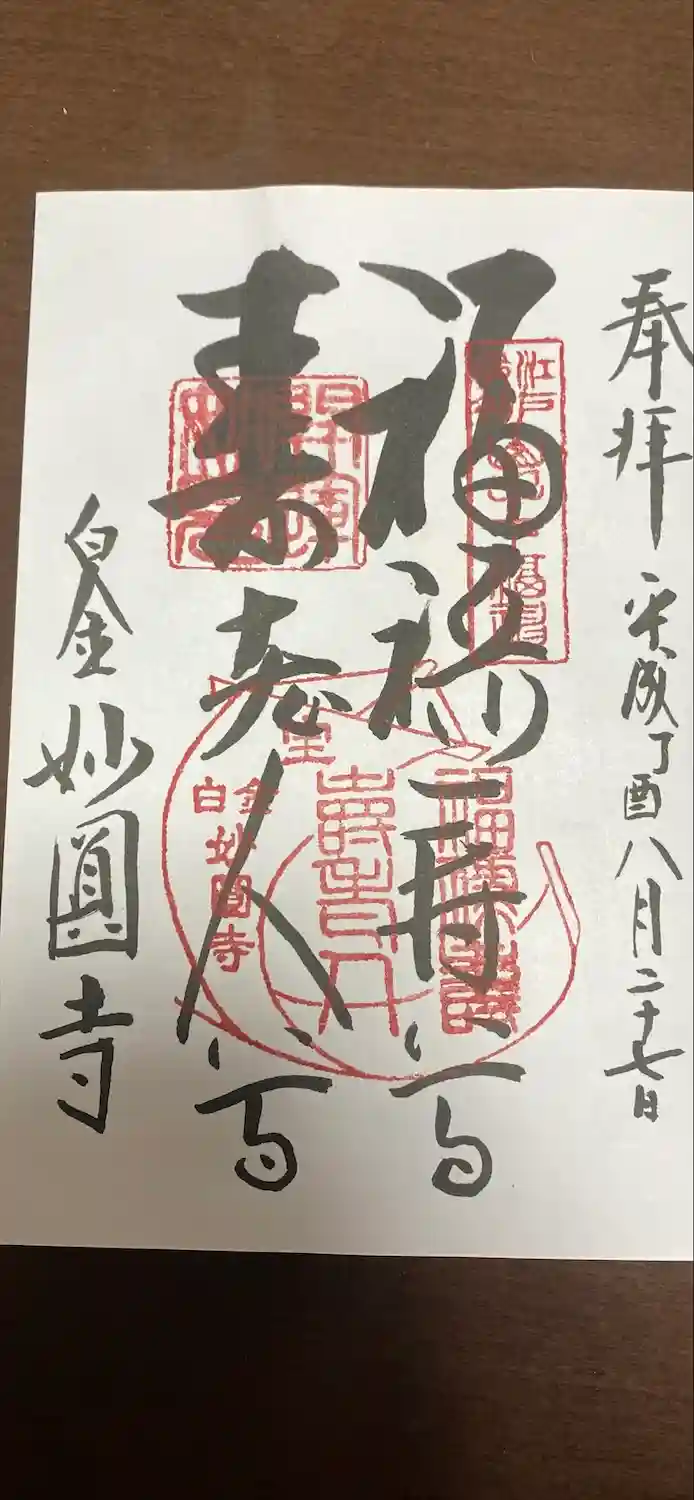 奉拝 平成丁酉八月二十七日
福禄寿尊
寿老人尊
白金 妙圓寺
開運
宝
福禄寿
寿老人
白金妙圓寺